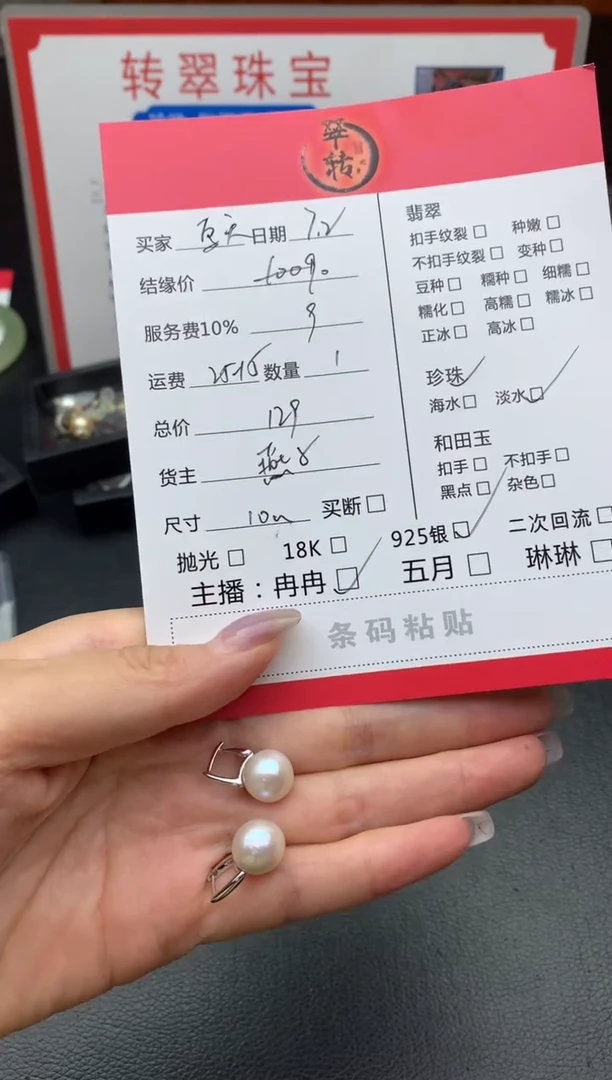 转翠珠宝
翠
转
买家 夏天 日期 7.2
结缘价
服务费10% 9
运费 数量 1
总价 129
货主
尺寸 10 买断 □
抛光 □ 18K □ 925银 ☑ 二次回流 □
主播：冉冉 ☑ 五月 □ 琳琳 □
条码粘贴
翡翠
扣手纹裂 □ 种嫩 □
不扣手纹裂 □ 变种 □
豆种 □ 糯种 □ 细糯 □
糯化 □ 高糯 □ 糯冰 □
正冰 □ 高冰 □
珍珠 ✓
海水 □ 淡水 ☑
和田玉
扣手 □ 不扣手 □
黑点 □ 杂色 □